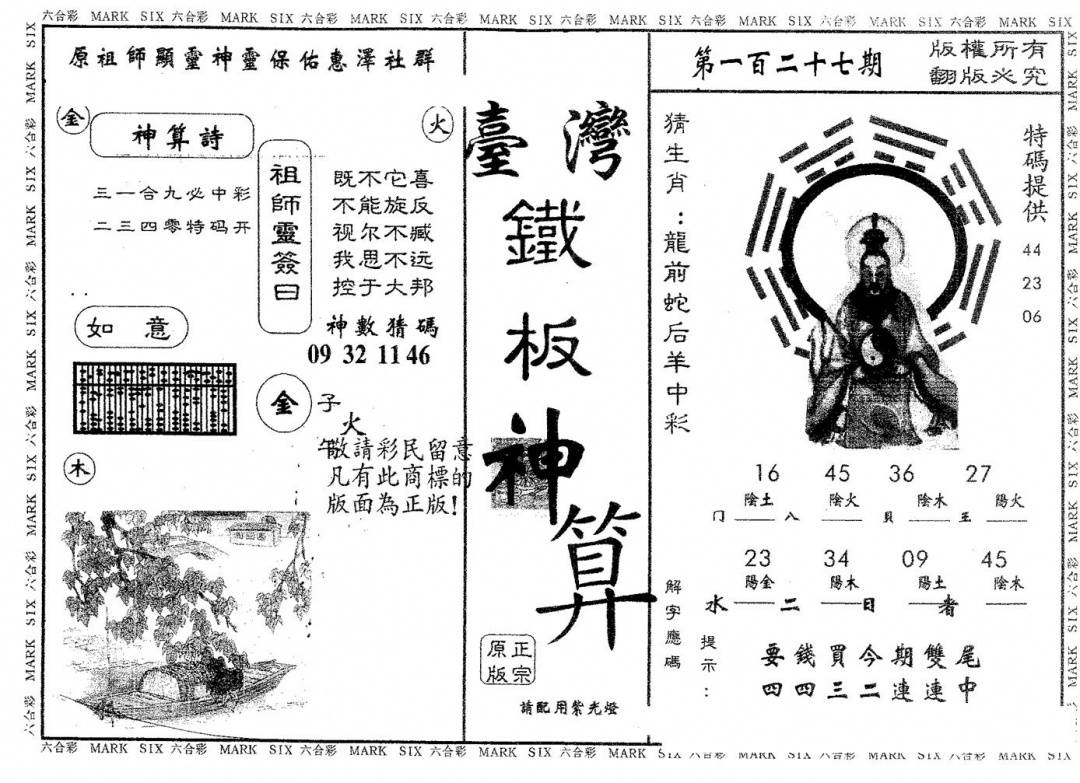 六合彩 MARK SIX 六合彩 MARK SIX 六合彩 MARK SIX 六合彩 MARK SIX 六合彩 MARK SIX 六合彩 MARK SIX 六合彩 MARK SIX 六合彩 MARK SIX
原祖師顯靈神靈保佑惠澤社群
金
神算詩
火
三一合九必中彩
二三四零特码开
祖師靈簽曰
既不它喜
不能旋反
视尔不臧
我思不远
控于大邦
神數猜碼
09 32 11 46
如意
金
子
火
午
敬請彩民留意
凡有此商標的
版面為正版!
木
臺灣
鐵板神算
正宗
原版
請配用紫光燈
第一百二十七期
版權所有
翻版必究
猜生肖:龍前蛇后羊中彩
特碼提供
44
23
06
16 45 36 27
陰土 陰火 陰木 陽火
门 八 貝 王
23 34 09 45
陽金 陽木 陽土 陰水
水 二 日 者
解字應碼
提示:
要錢買今期雙尾
四四三二連連中
六合彩 MARK SIX 六合彩 MARK SIX 六合彩 MARK SIX 六合彩 MARK SIX 六合彩 MARK SIX